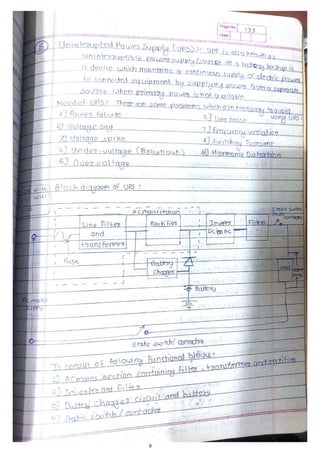 Page No. 133
Date
8) Uninterrupted Power Supply (UPS) :- UPS is also known as
uninterruptible power supply/source or a battery backup is
a device which maintains a continuous supply of electric power
to connected equipment by supplying power from a separate
source when primary power is not available
Need of UPS: There are some problems which are necessary to avoid
using UPS:
1) Power Failure
2) Voltage sag
3) Voltage spike
4) Under-voltage (Brownout)
5) Over voltage
6) Line noise
7) Frequency variation
8) Switching Transient
9) Harmonic Distortion
Block diagram of UPS :
AC main section
Static switch
Line Filter
and
transformer
Rectifier
Inverter
DC to AC
Filter
Fuse
Battery
Charger
Load
Battery
AC mains
supply
Static switch/ contactor
To consist of following Functional blocks:
1) AC mains section containing Filter, transformer and rectifier
2) Inverter and Filter
3) Battery charger circuit and battery
4) Static switch / contactor
9